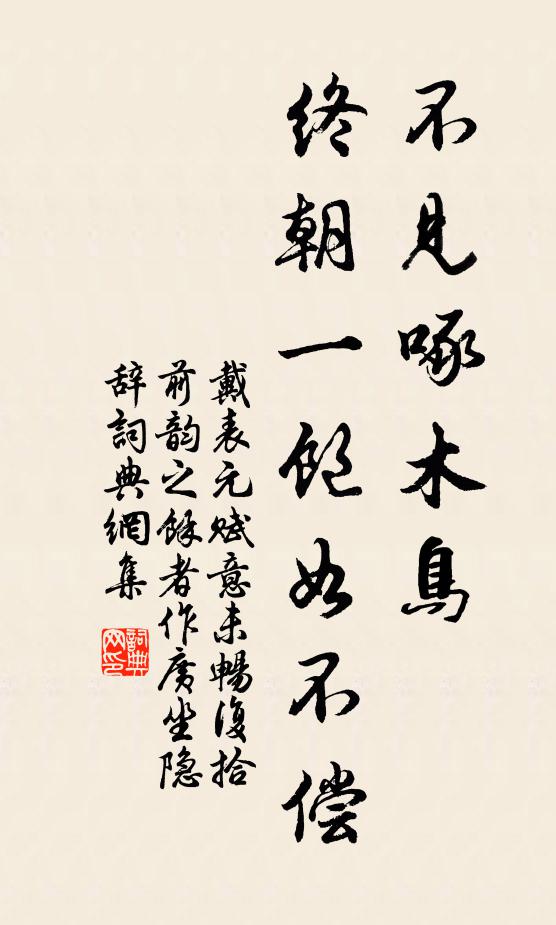 不見啄木鳥
終朝一飽如不偿
戴表元賦意未暢復拾
前韵之餘者作廣坐隐
辞詞典網集
詞典网印